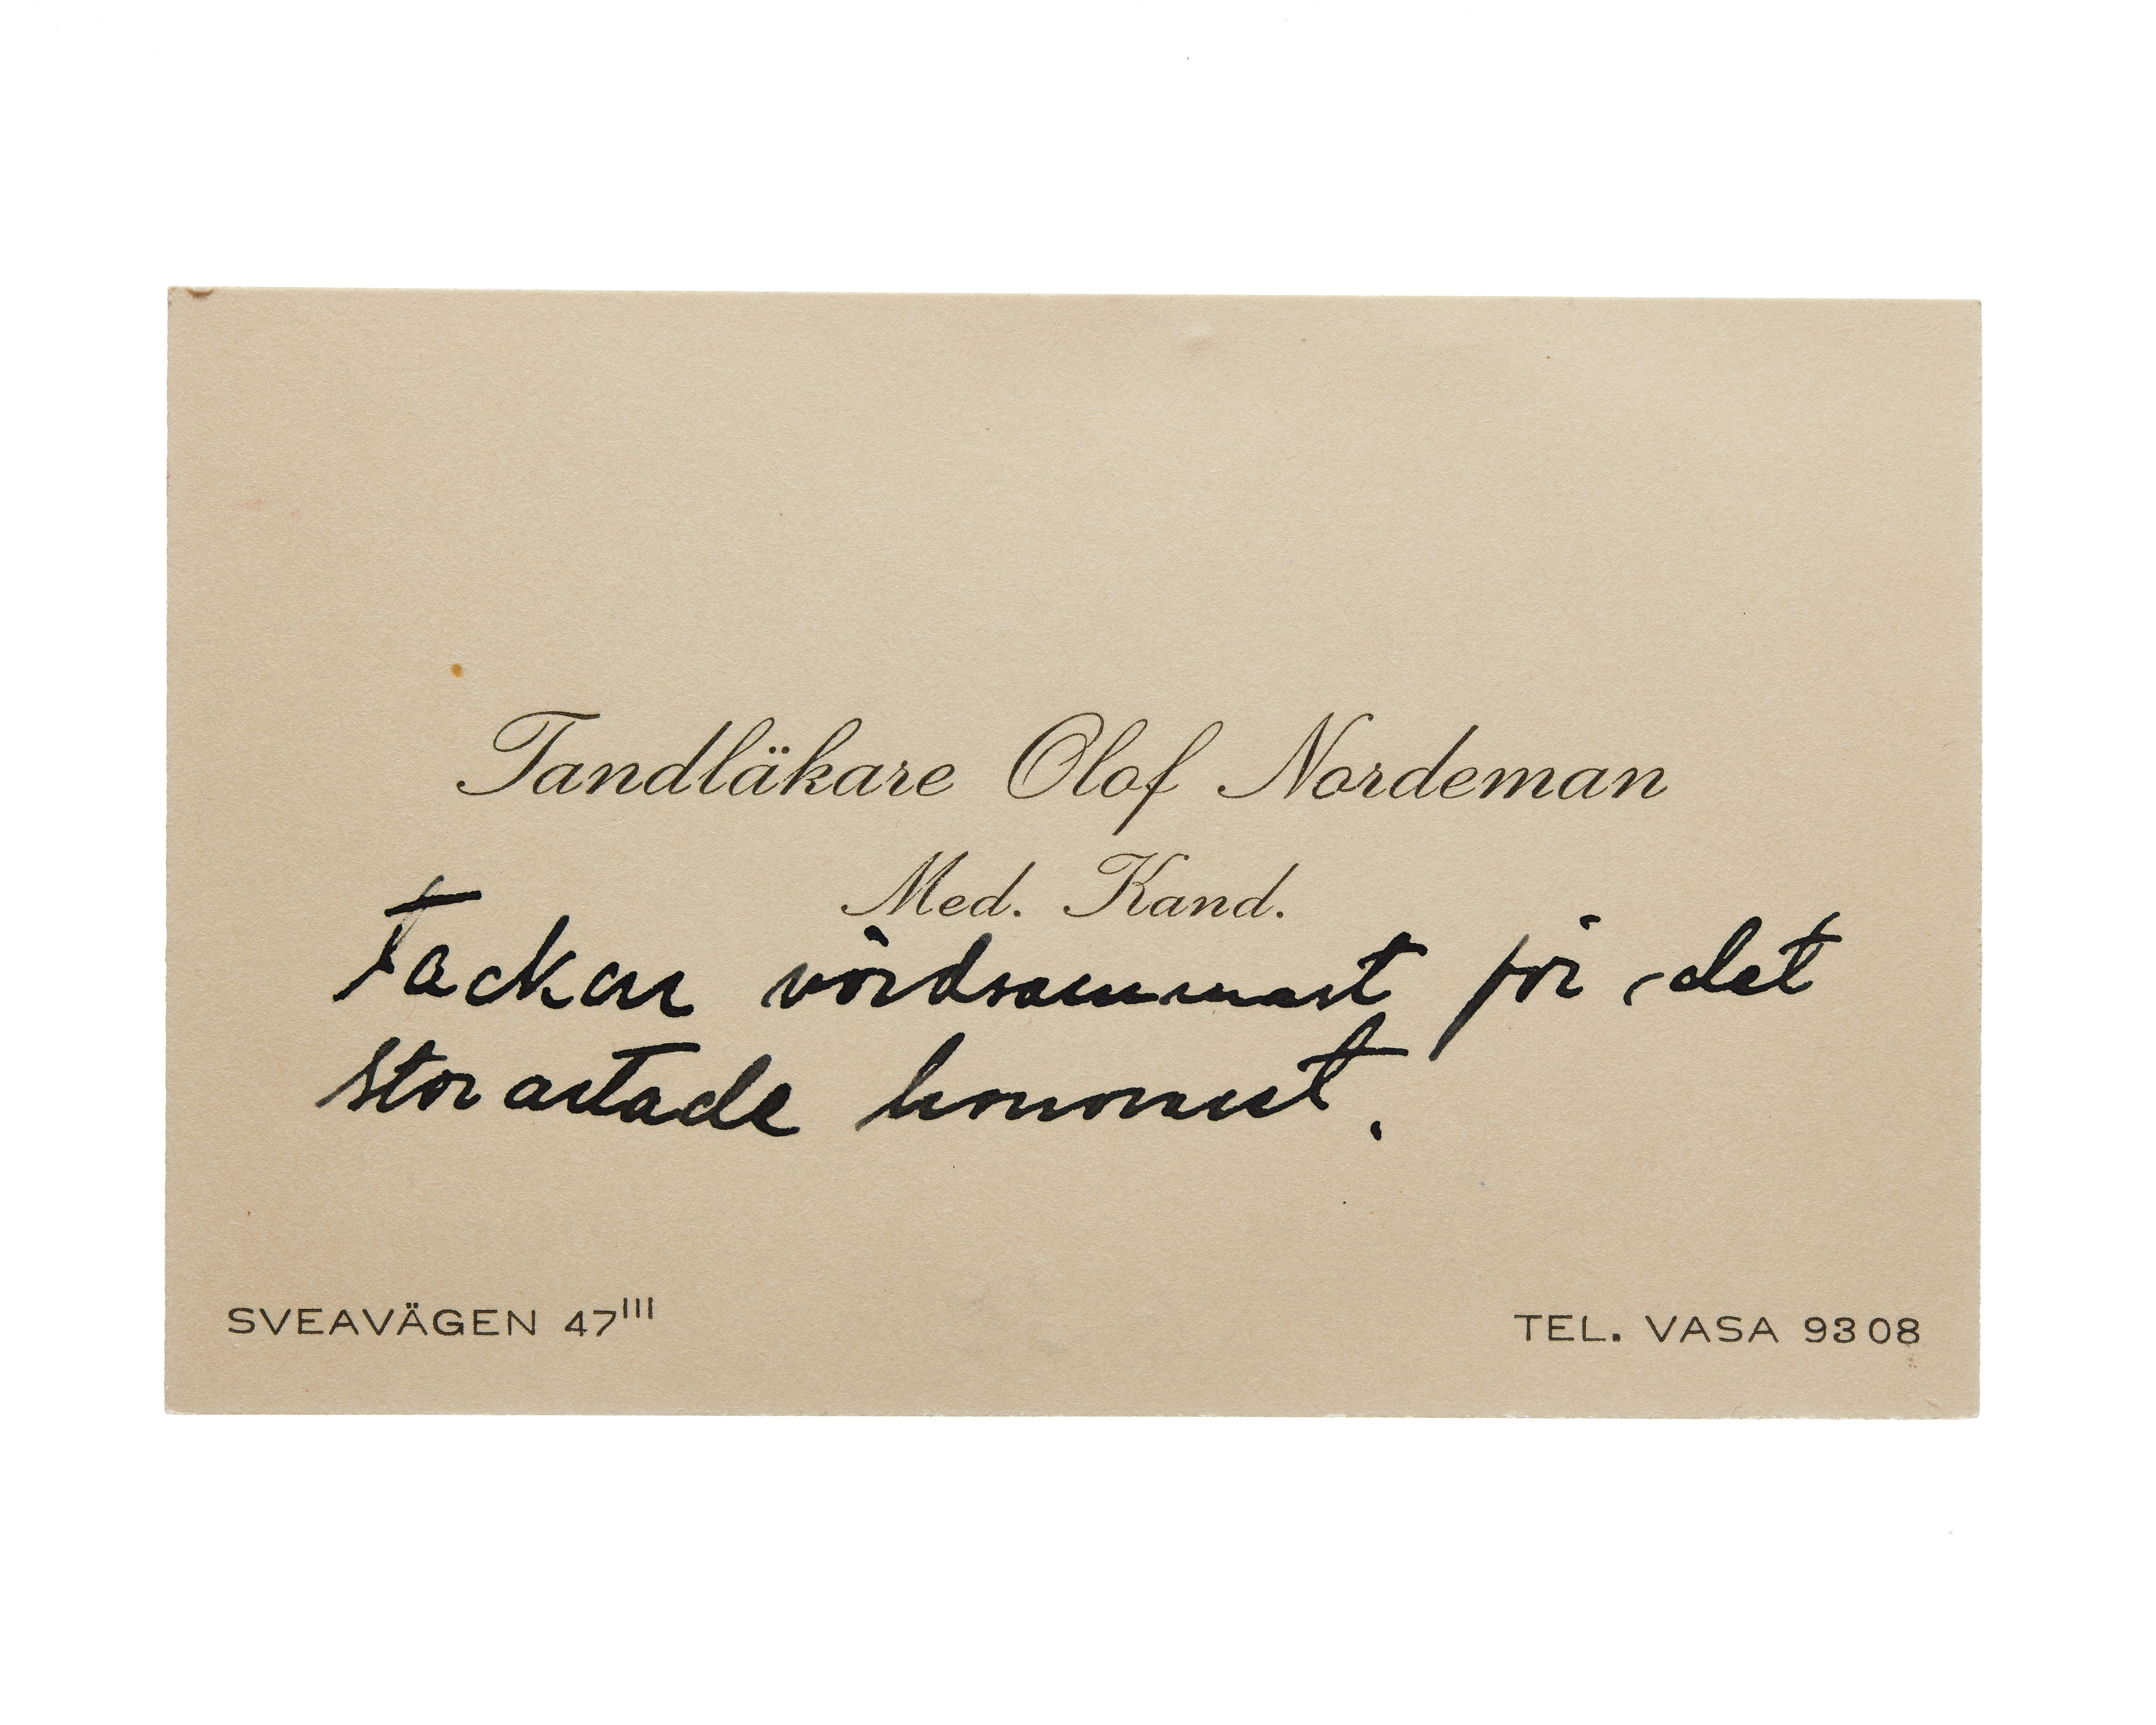 Tandläkare Olof Nordeman
Med. Kand.
Tackar vördsammast för det
storartade honoraret.
SVEAVÄGEN 47III
TEL. VASA 9308